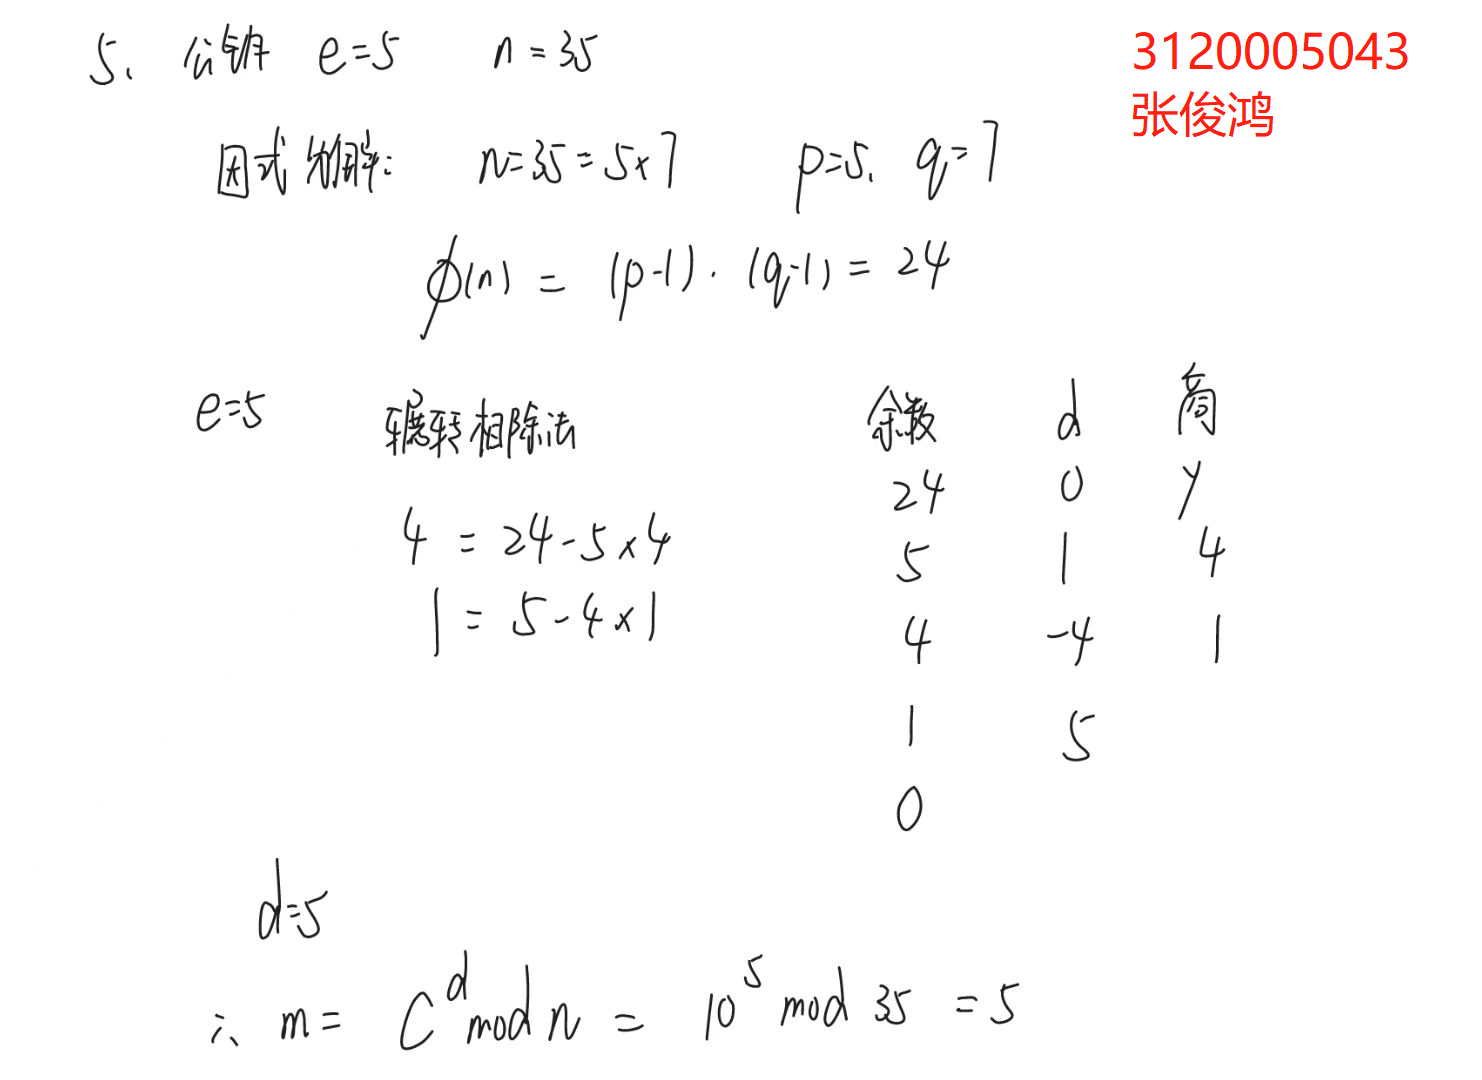 5、公钥 e=5 n=35
3120005043
张俊鸿
因式分解: n=35=5×7 p=5、q=7
φ(n) = (p-1)·(q-1) = 24
e=5 辗转相除法
4 = 24-5×4
1 = 5-4×1
余数 d 商
24 0 y
5 1 4
4 -4 1
1 5
0
d=5
∴ m= C^d mod n = 10^5 mod 35 = 5